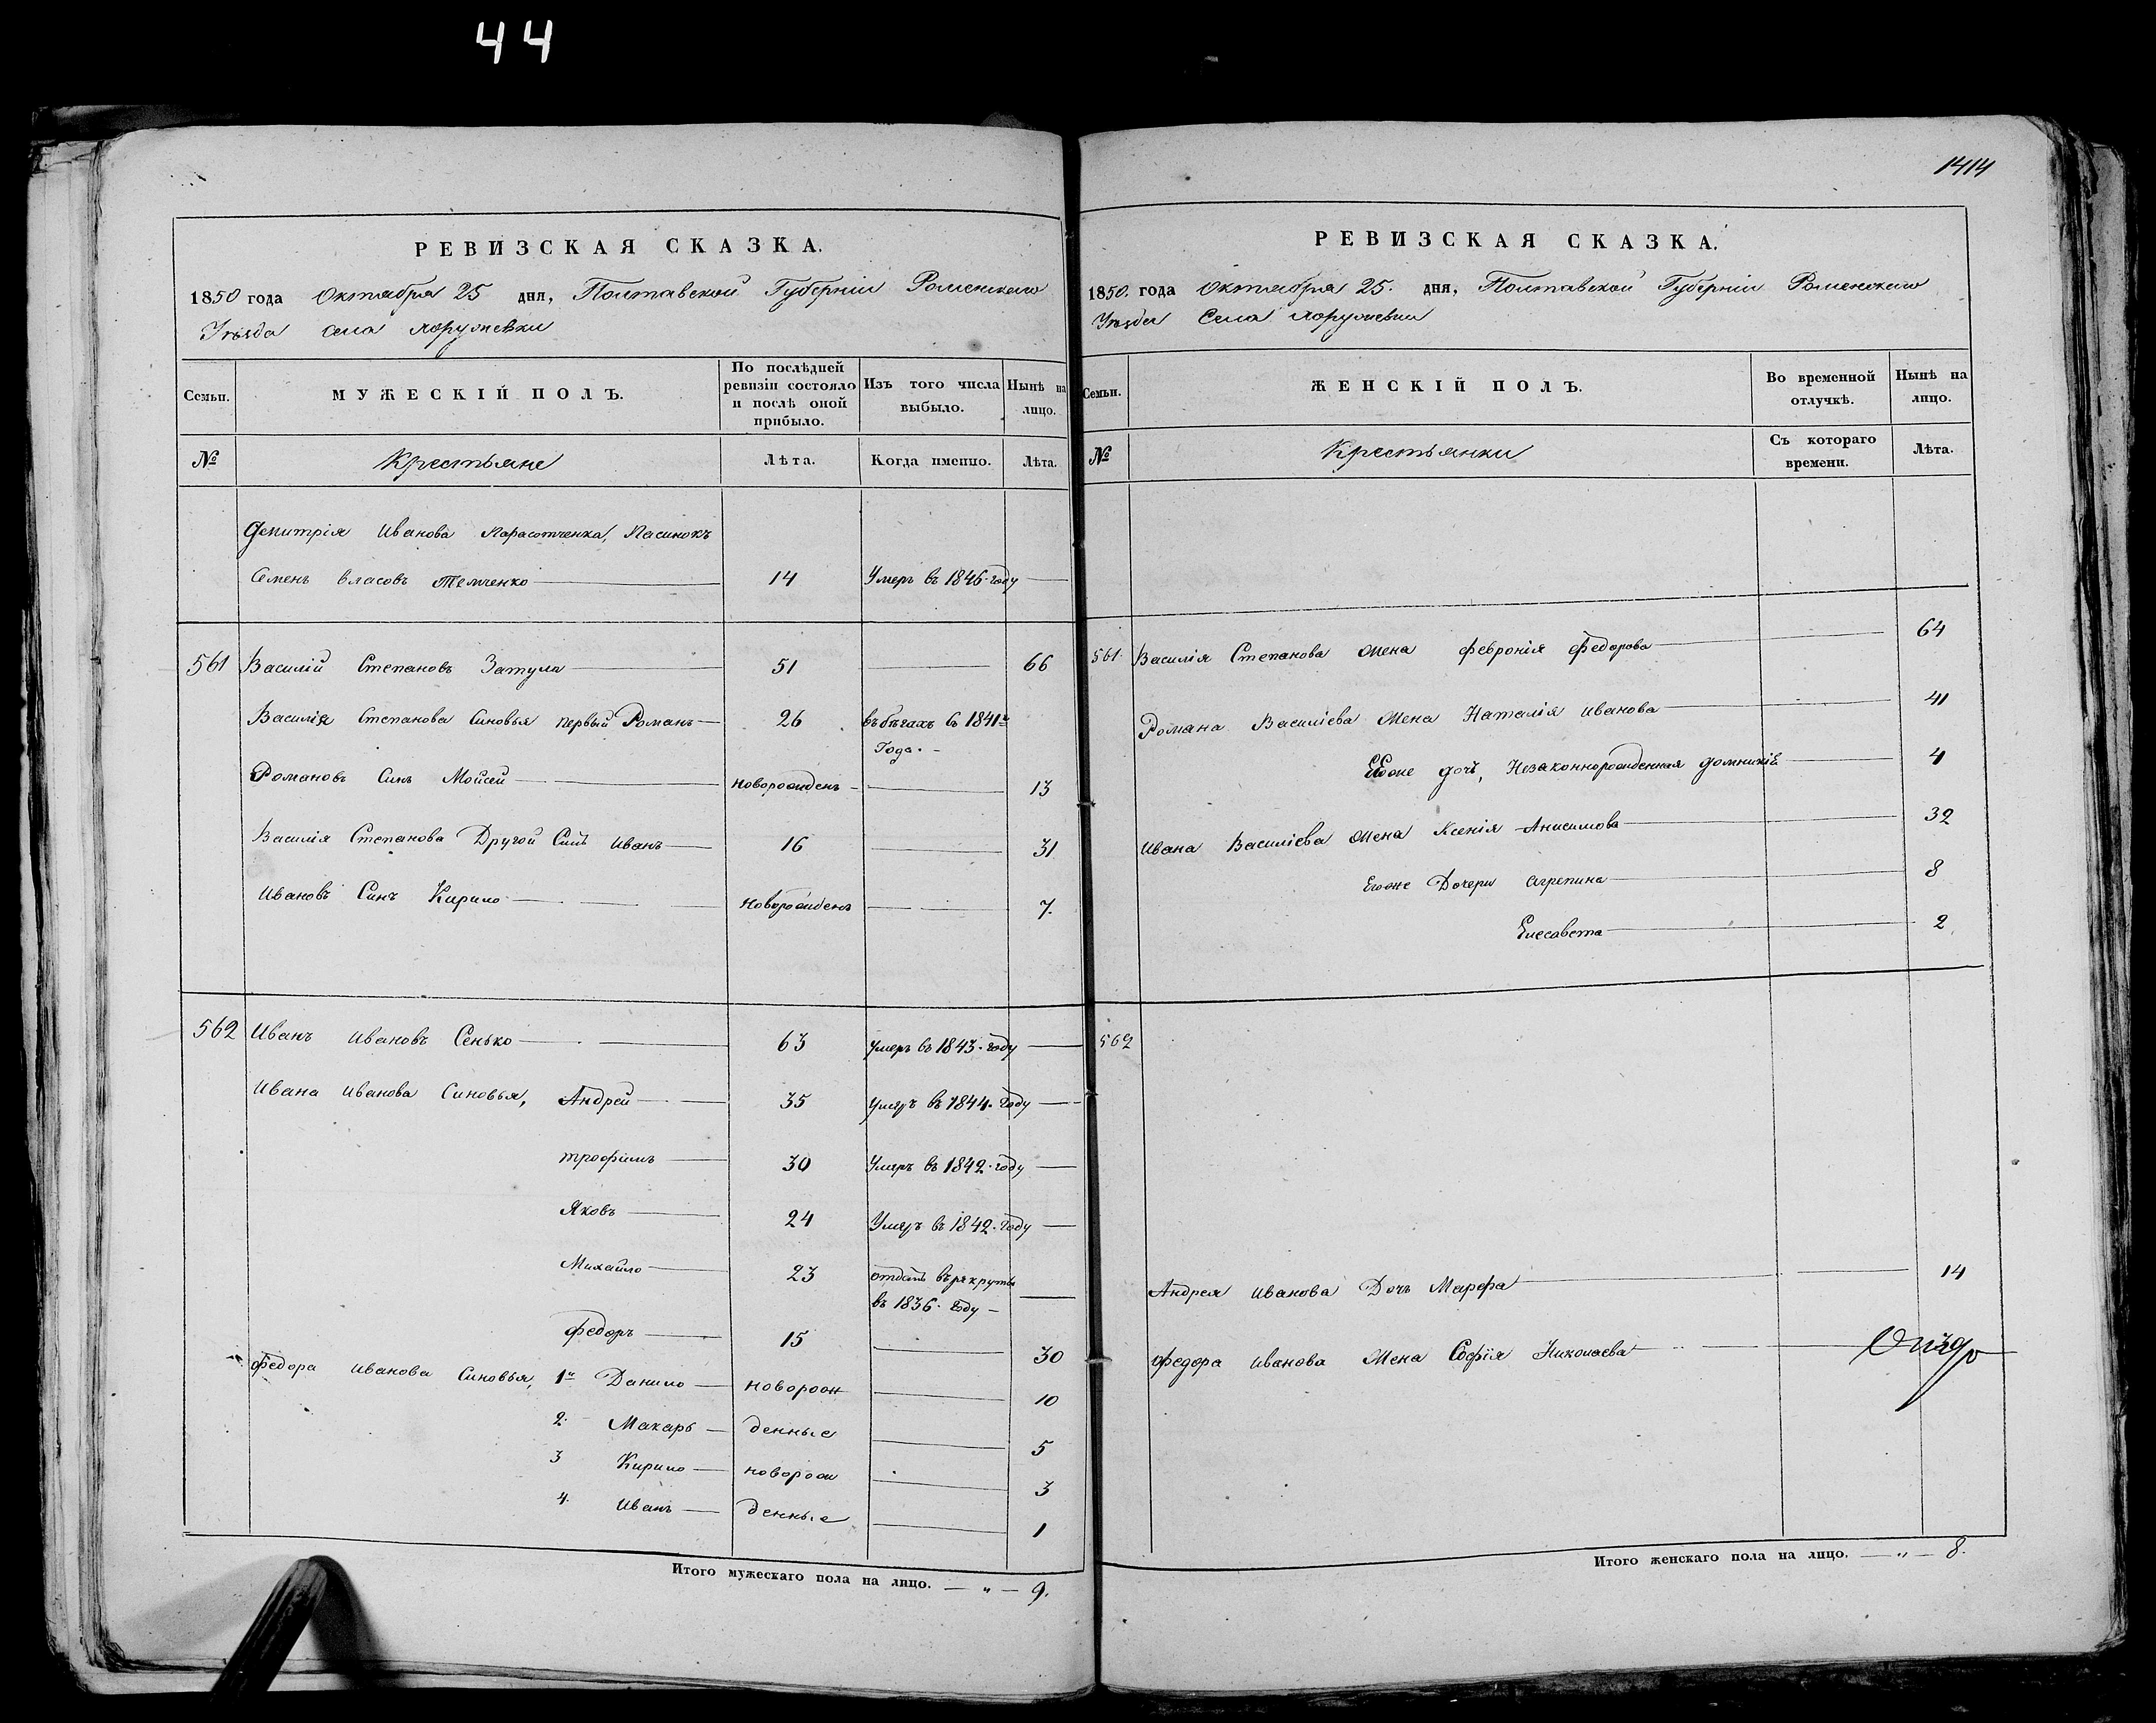 44
1414
РЕВИЗСКАЯ СКАЗКА.
1850 года Октября 25 дня, Полтавской Губерніи Роменскаго
Уѣзда села
Семьи.
МУЖЕСКІЙ ПОЛЪ.
По послѣдней ревизіи состояло и послѣ оной прибыло.
Изъ того числа выбыло.
Нынѣ на лицо.
№
Крестьяне
Лѣта.
Когда имянно.
Лѣта.
Демитрія Иванова Пасинокъ
Семенъ Власовъ Темченко 14 Умеръ въ 1846 году
561 Василій Степановъ Затула 51 66
Василія Степанова Синовья первый Романъ 26 въ бѣгахъ съ 1841го
Года.
Романовъ Синъ Мойсей новорожденъ 13
Василія Степанова Другой Синъ Иванъ 16 31
Ивановъ Синъ Кирило Новорожденъ 7.
562 Иванъ Ивановъ Сенько 63 умеръ въ 1843. году
Ивана Иванова Синовья, Андрей 35 умеръ въ 1844. году
трофимъ 30 Умеръ въ 1842. году
Яковъ 24 Умеръ въ 1842. году
Михайло 23 отданъ въ рекруты
въ 1836. году
Федоръ 15 30
Федора Иванова Синовья, 1й Данило новорож 10
2. Макаръ денные 5
3 Кирило новорож 3
4. Иванъ денные 1
Итого мужескаго пола на лицо. — „ — 9.
РЕВИЗСКАЯ СКАЗКА.
1850. года Октября 25. дня, Полтавской Губерніи Роменскаго
Уѣзда Села
Семьи.
ЖЕНСКІЙ ПОЛЪ.
Во временной отлучкѣ.
Нынѣ на лицо.
№
Крестьянки
Съ котораго времени.
Лѣта.
561. Василія Степанова жена Февронія Федорова 64
Романа Василіева жена Наталія Иванова 41
Еѣже дочь, Незаконнорожденная домникія 4
Ивана Василіева жена Ксенія Анисимова 32
Егоже Дочери Агрепина 8
Елесавета 2
562
Андрея Иванова Дочь Марфа 14
Федора Иванова Жена Софія Николаева
Итого женскаго пола на лицо. — „ — 8.